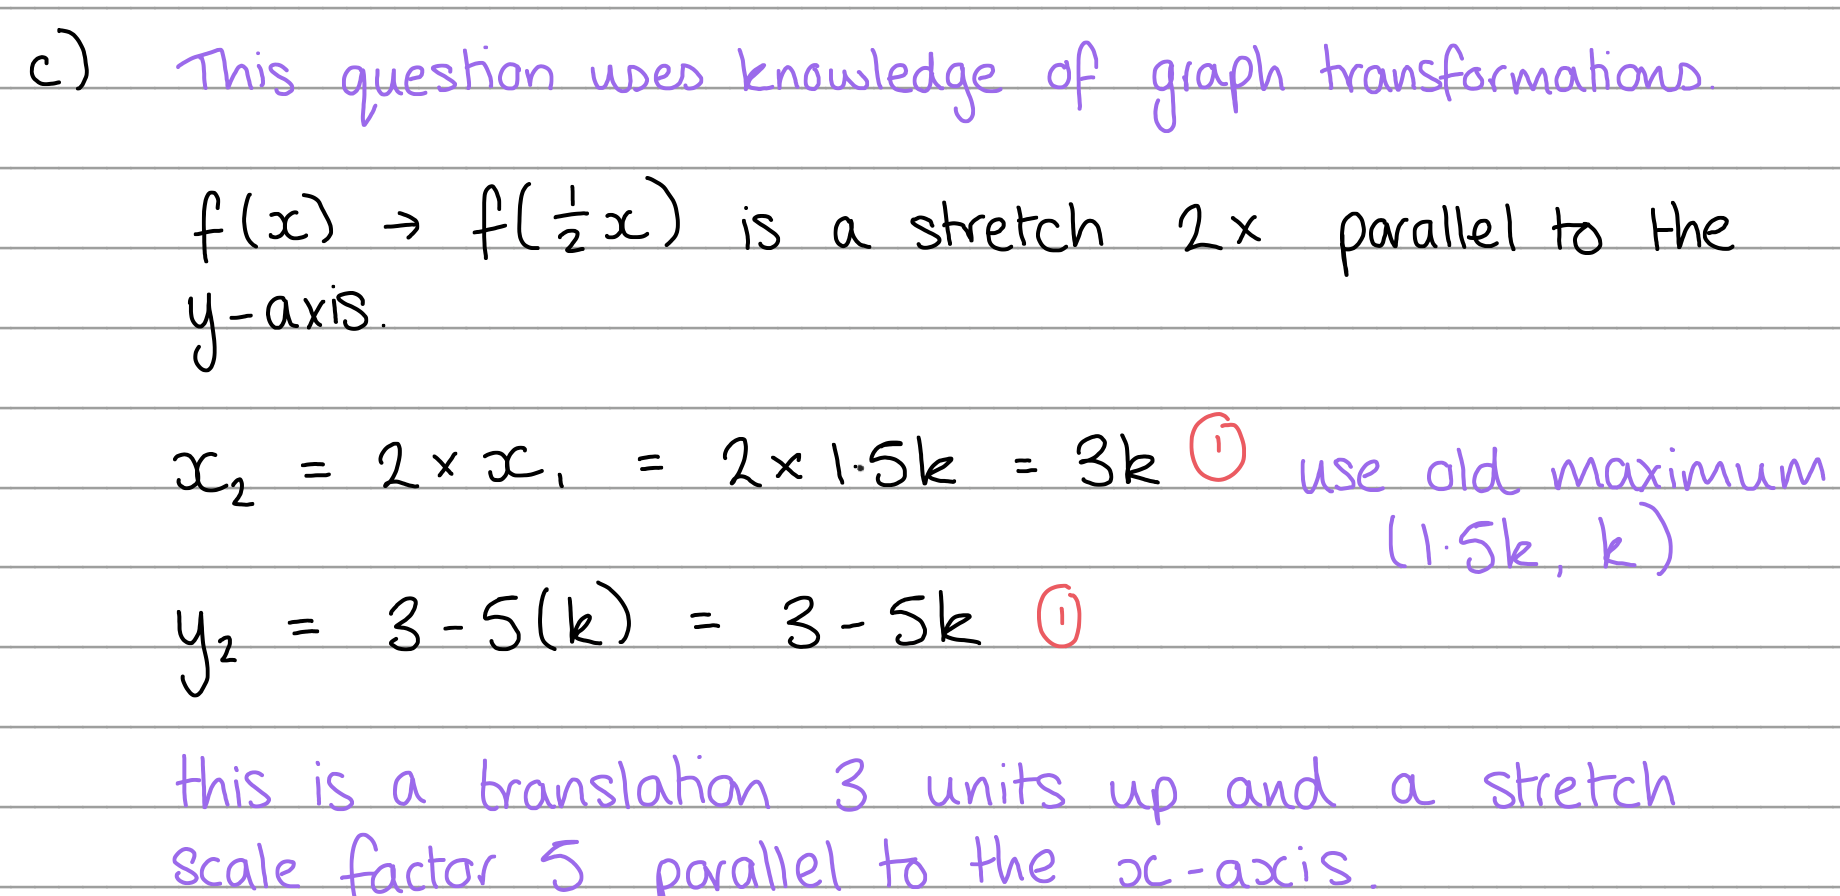 c) This question uses knowledge of graph transformations.
f(x) → f(½x) is a stretch 2× parallel to the
y-axis.
x₂ = 2 × x₁ = 2 × 1·5k = 3k ① use old maximum
(1·5k, k)
y₂ = 3 - 5(k) = 3 - 5k ①
this is a translation 3 units up and a stretch
scale factor 5 parallel to the x-axis.